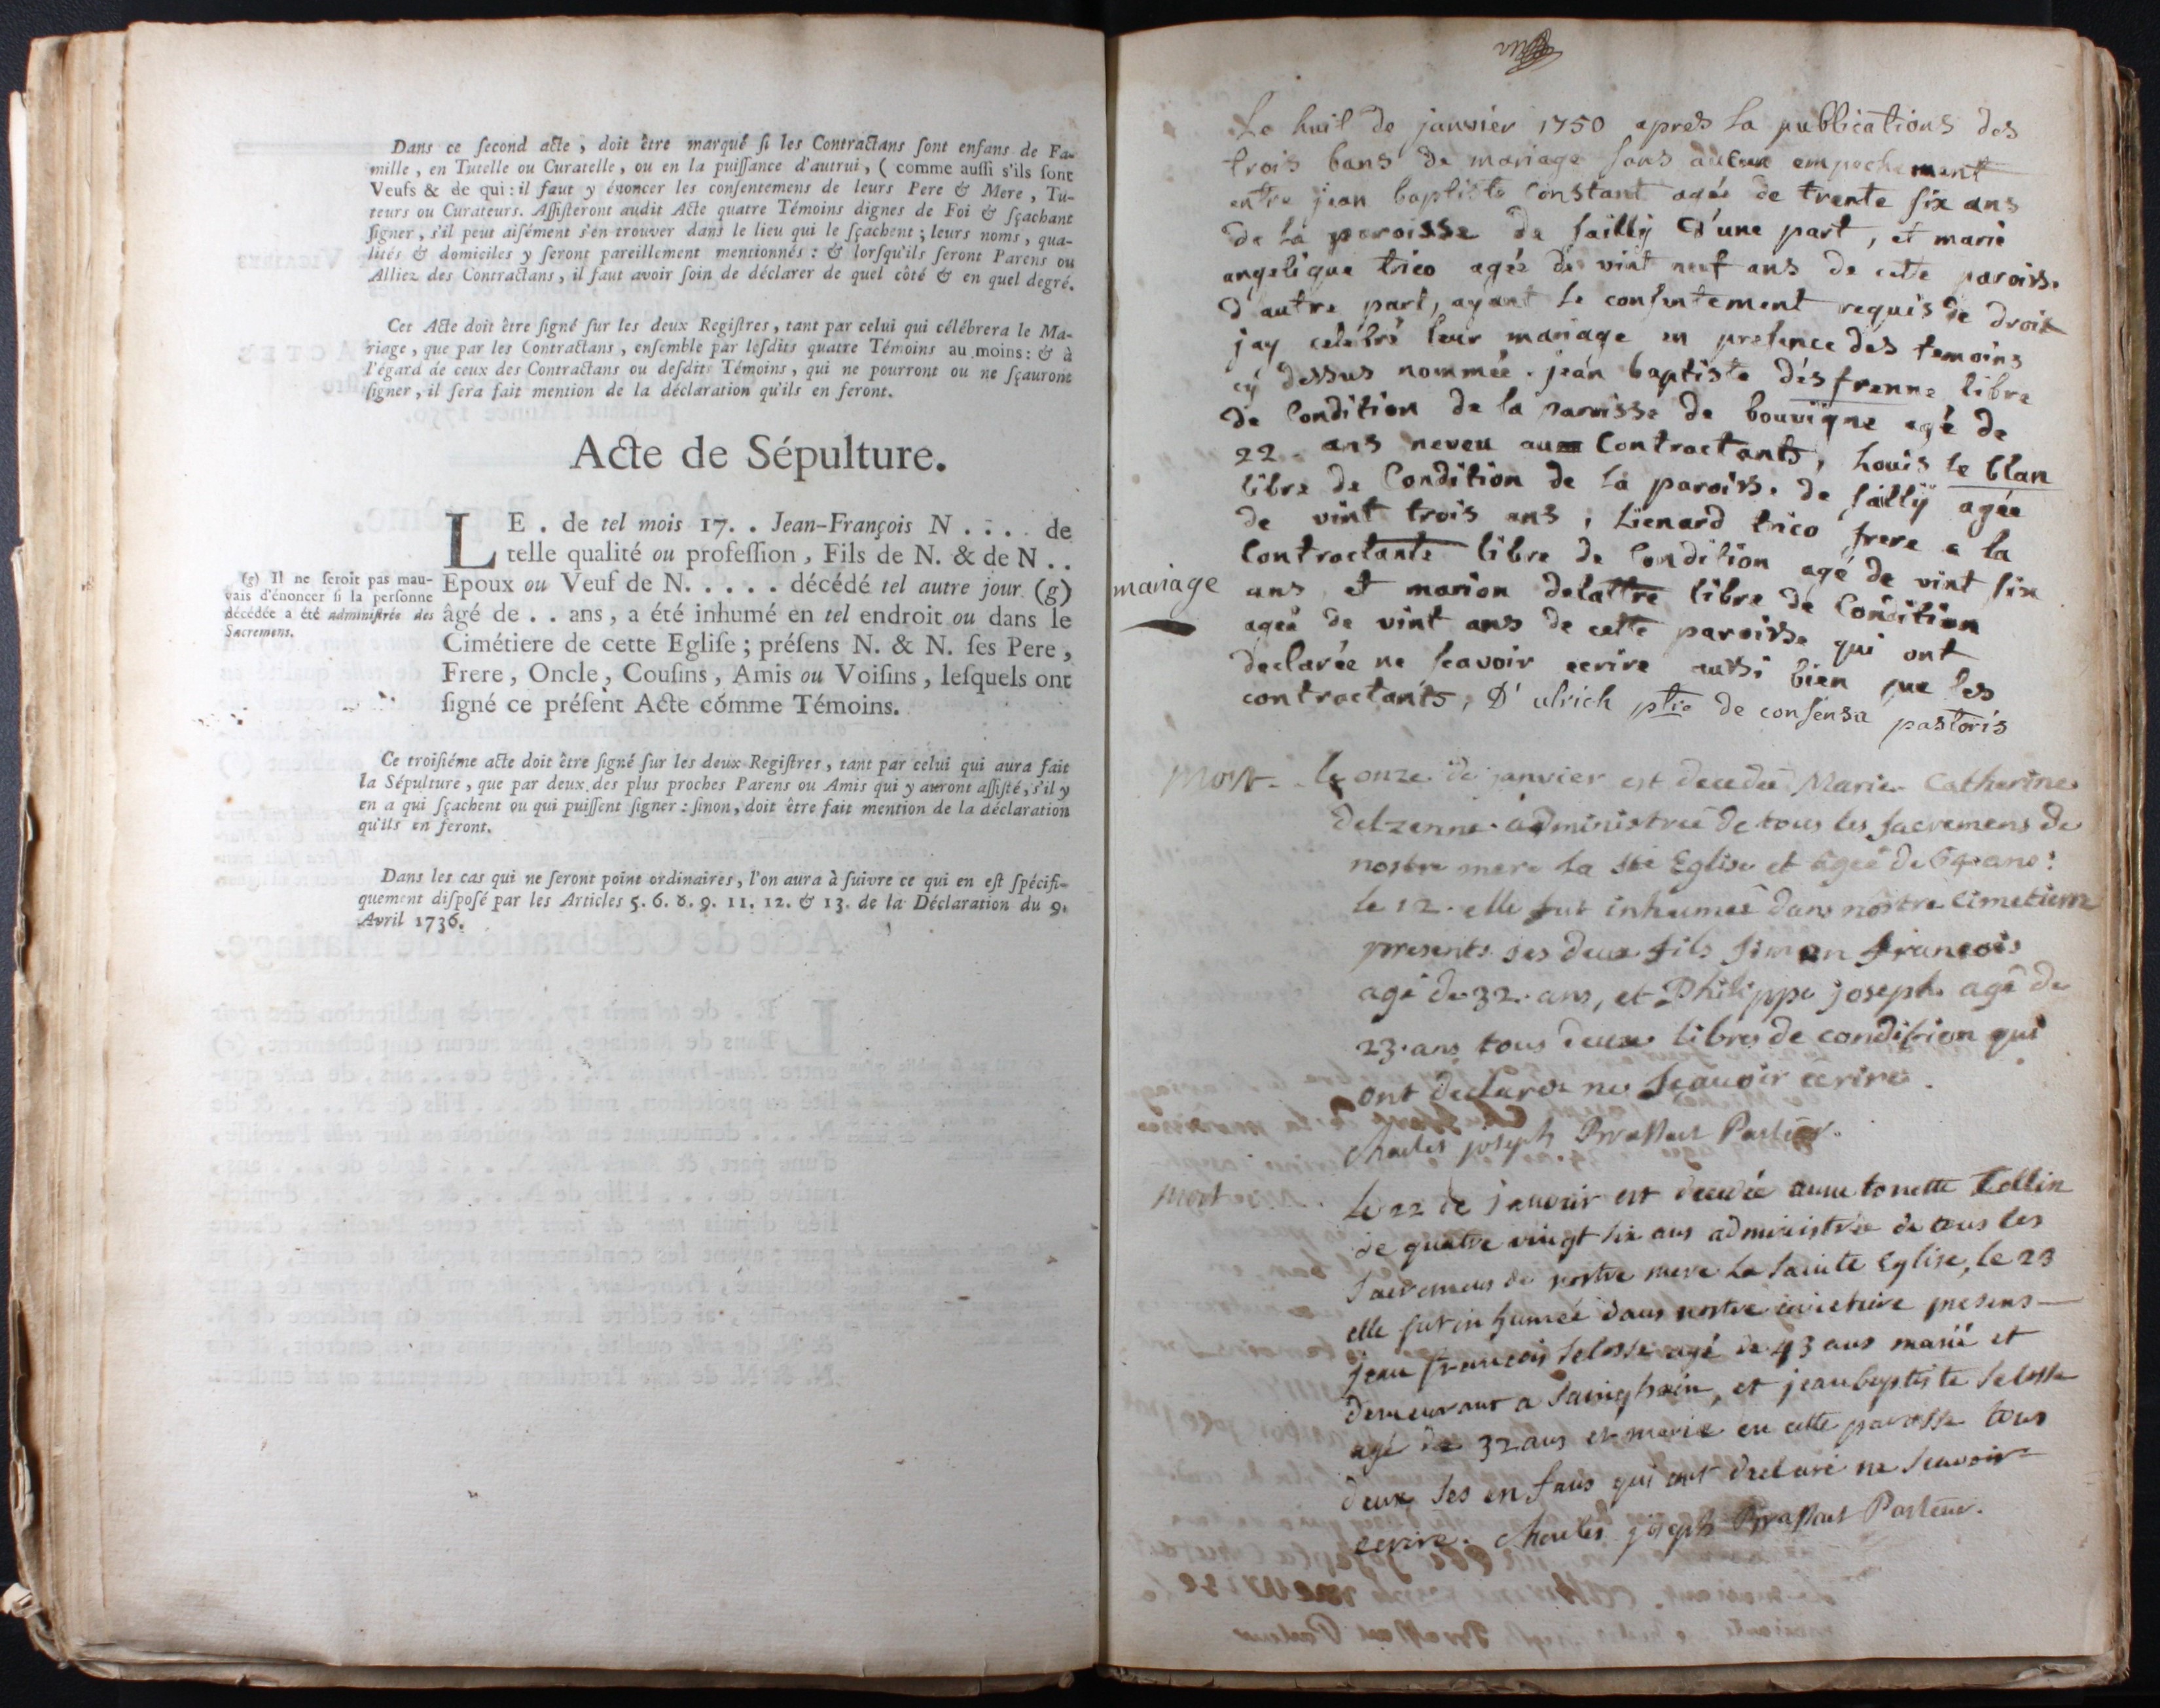 Dans ce ſecond acte, doit être marqué ſi les Contractans ſont enfans de Fa-
mille, en Tutelle ou Curatelle, ou en la puiſſance d'autrui, (comme auſſi s'ils ſont
Veufs & de qui: il faut y énoncer les conſentemens de leurs Pere & Mere, Tu-
teurs ou Curateurs. Aſſiſteront audit Acte quatre Témoins dignes de Foi & ſçachant
ſigner, s'il peut aiſément s'en trouver dans le lieu qui le ſçachent; leurs noms, qua-
lités & domiciles y ſeront pareillement mentionnés: & lorſqu'ils ſeront Parens ou
Alliez des Contractans, il faut avoir ſoin de déclarer de quel côté & en quel degré.
Cet Acte doit être ſigné ſur les deux Regiſtres, tant par celui qui célébrera le Ma-
riage, que par les Contractans, enſemble par leſdits quatre Témoins au moins: & à
l'égard de ceux des Contractans ou deſdits Témoins, qui ne pourront ou ne ſçauront
ſigner, il ſera fait mention de la déclaration qu'ils en feront.
Acte de Sépulture.
LE . de tel mois 17. . Jean-François N . . . . de
telle qualité ou profeſſion, Fils de N. & de N . .
Epoux ou Veuf de N. . . . . décédé tel autre jour (g)
âgé de . . ans, a été inhumé en tel endroit ou dans le
Cimétiere de cette Egliſe; préſens N. & N. ſes Pere,
Frere, Oncle, Couſins, Amis ou Voiſins, leſquels ont
ſigné ce préſent Acte cómme Témoins.
(g) Il ne ſeroit pas mau-
vais d'énoncer ſi la perſonne
décédée a été adminiſtrée des
Sacremens.
Ce troiſiéme acte doit être ſigné ſur les deux Regiſtres, tant par celui qui aura fait
la Sépulture, que par deux des plus proches Parens ou Amis qui y auront aſſiſté, s'il y
en a qui ſçachent ou qui puiſſent ſigner: ſinon, doit être fait mention de la déclaration
qu'ils en feront.
Dans les cas qui ne ſeront point ordinaires, l'on aura à ſuivre ce qui en eſt ſpécifi-
quement diſpoſé par les Articles 5. 6. 8. 9. 11. 12. & 13. de la Déclaration du 9.
Avril 1736.
Le huit de janvier 1750 apres la publications des
trois bans de mariage sans aucun empechement
entre jean baptiste Constant agée de trente six ans
de la paroisse de sailly d'une part, et marie
angelique trico agée de vint neuf ans de cette paroiss.
d'autre part, ayant le consentement requis de droit
jay celebré leur mariage en presence des temoins
cy dessus nommée. jean baptiste désfrenne libre
de Condition de la paroisse de bouvigne agé de
22 ans neveu au Contractants, Louis le blan
libre de Condition de la paroiss. de sailly agée
de vint trois ans, Lienard trico frere a la
Contractante libre de Condition agé de vint six
ans et marion delattre libre de Condition
mariage
ageé de vint ans de cette paroisse qui ont
declarée ne scavoir ecrire aussi bien que les
contractants, D'ulrich ptre de consensu pastoris
Mort - le onze de janvier est decedeé Marie Catherine
delzenne administrée de tous les sacremens de
nostre mere la Ste Eglise et ageé de 64 ans:
le 12. elle fut inhumeé dans nostre Cimetierre
presents ses deux fils simon francois
agé de 32. ans, et Philippe joseph agé de
23. ans tous deux libres de condition qui
ont declarez ne scauoir ecrire.
Charles joseph Pasteur.
mort . le 22 de janvier est decedée anne tonette
de quatre vingt six ans administrée de tous les
sacremens de nostre mere la sainte Eglise, le 23
elle fut inhumeé dans nostre cimetiere presens
jean francois selosse agé de 43 ans marié et
demeurant a sainghein, et jean baptiste selosse
agé de 32 ans et marié en cette paroisse tous
deux ses enfans qui ont declaré ne scavoir
ecrire. Charles joseph Pasteur.